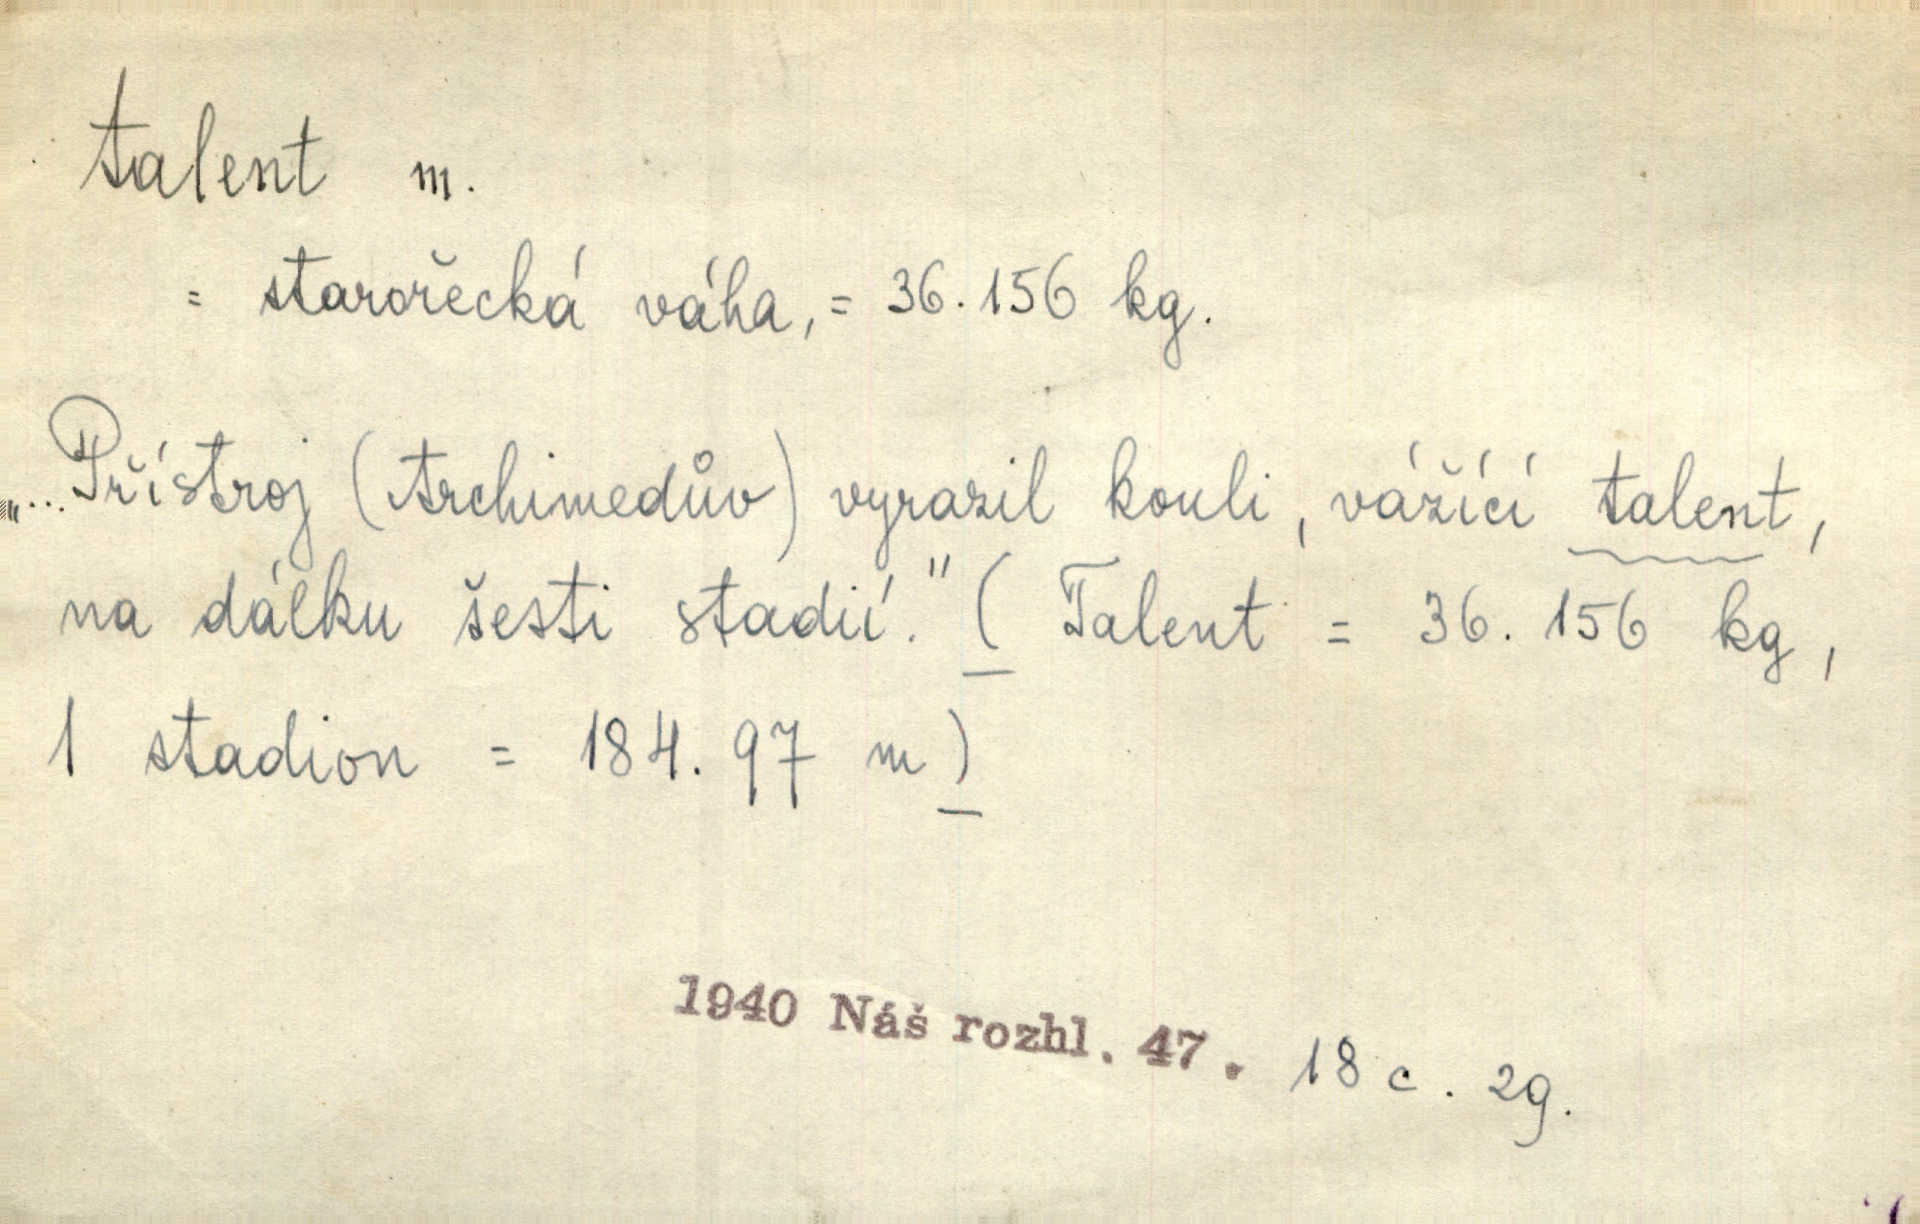 talent m.
= starořecká váha, = 36.156 kg.
„... Přístroj (Archimedův) vyrazil kouli, vážící talent,
na dálku šesti stadií." ( Talent = 36. 156 kg,
1 stadion = 184. 97 m )
1940 Náš rozhl. 47. 18 c. 29.